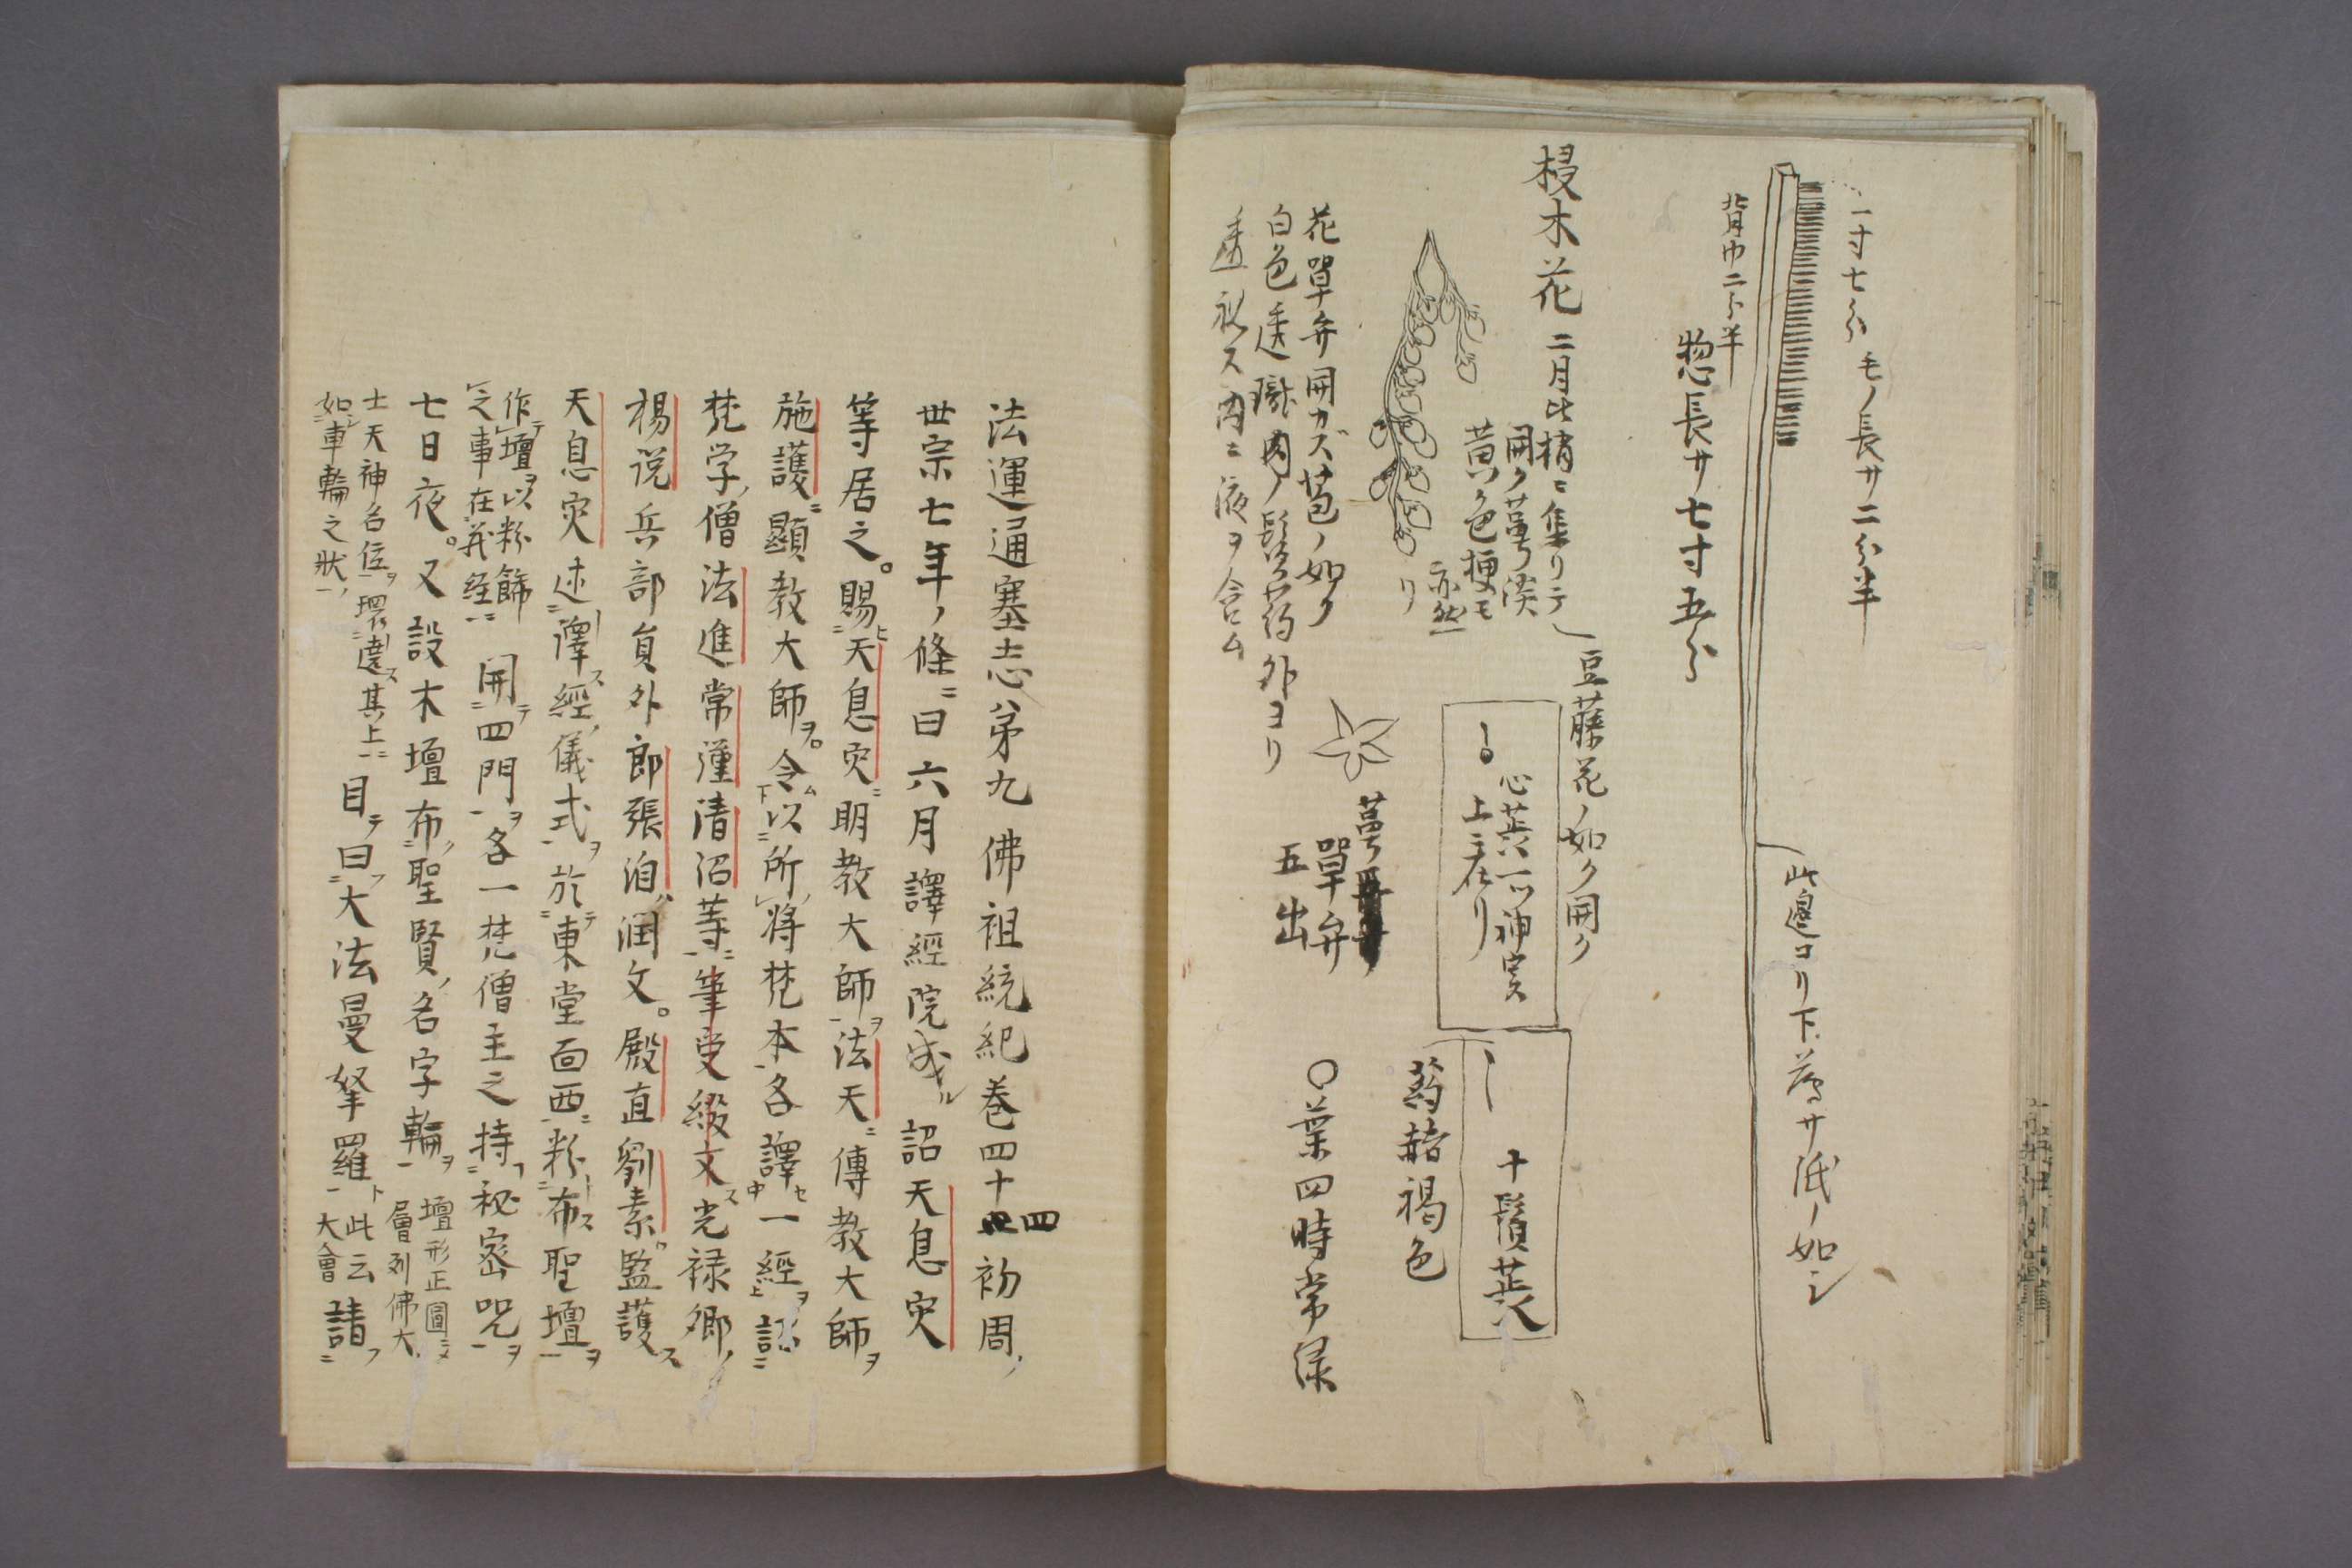 一寸七分
毛ノ長サ二分半
背巾二分半
惣長サ七寸五分
此邉ヨリ下薄サ紙ノ如シ
梫木花
二月比梢ニ集リテ
開ク萼淡
黄色梗モ
亦然
リ
豆藤花ノ如ク開ク
心蕋一ツ神実
上ニ在リ
十鬚蕋
花單弁開カズ苞ノ如ク
白色透徹肉ノ鬚葯外ヨリ
透徹ス内ニ液ヲ含ム
萼
單弁
五出
葯赭褐色
○葉四時常緑
法運通塞志第九佛祖統紀巻四十四初周ノ
世宗七年ノ條ニ曰六月譯經院成ル詔天息灾
等居之。賜ヒ天息灾ニ明教大師ヲ法天ニ傳教大師ヲ
施護ニ顯教大師ヲ。令ム下以所ノ將梵本各譯セ中一經ヲ上詔ニ
梵学ノ僧法進常謹清沼等ニ筆受綴文ス光禄卿ノ
楊説兵部員外郎張洎ハ潤文。殿直劉素ハ監護ス
天息灾述譯ス經ノ儀式ヲ於テ東堂面西ニ粉布ス聖壇ヲ
作テ壇ヲ以粉餙
之事在并経ニ
開テ四門ヲ各一梵僧主之持秘密呪ヲ
七日夜。又設木壇布ノ聖賢ノ名字輪ヲ
壇形正圓ニ〆
層列佛大
士天神名位ヲ環遶ス其上ニ
如車輪之狀ノ
目テ曰フ大法曼拏羅ト
此云
大會
請フ